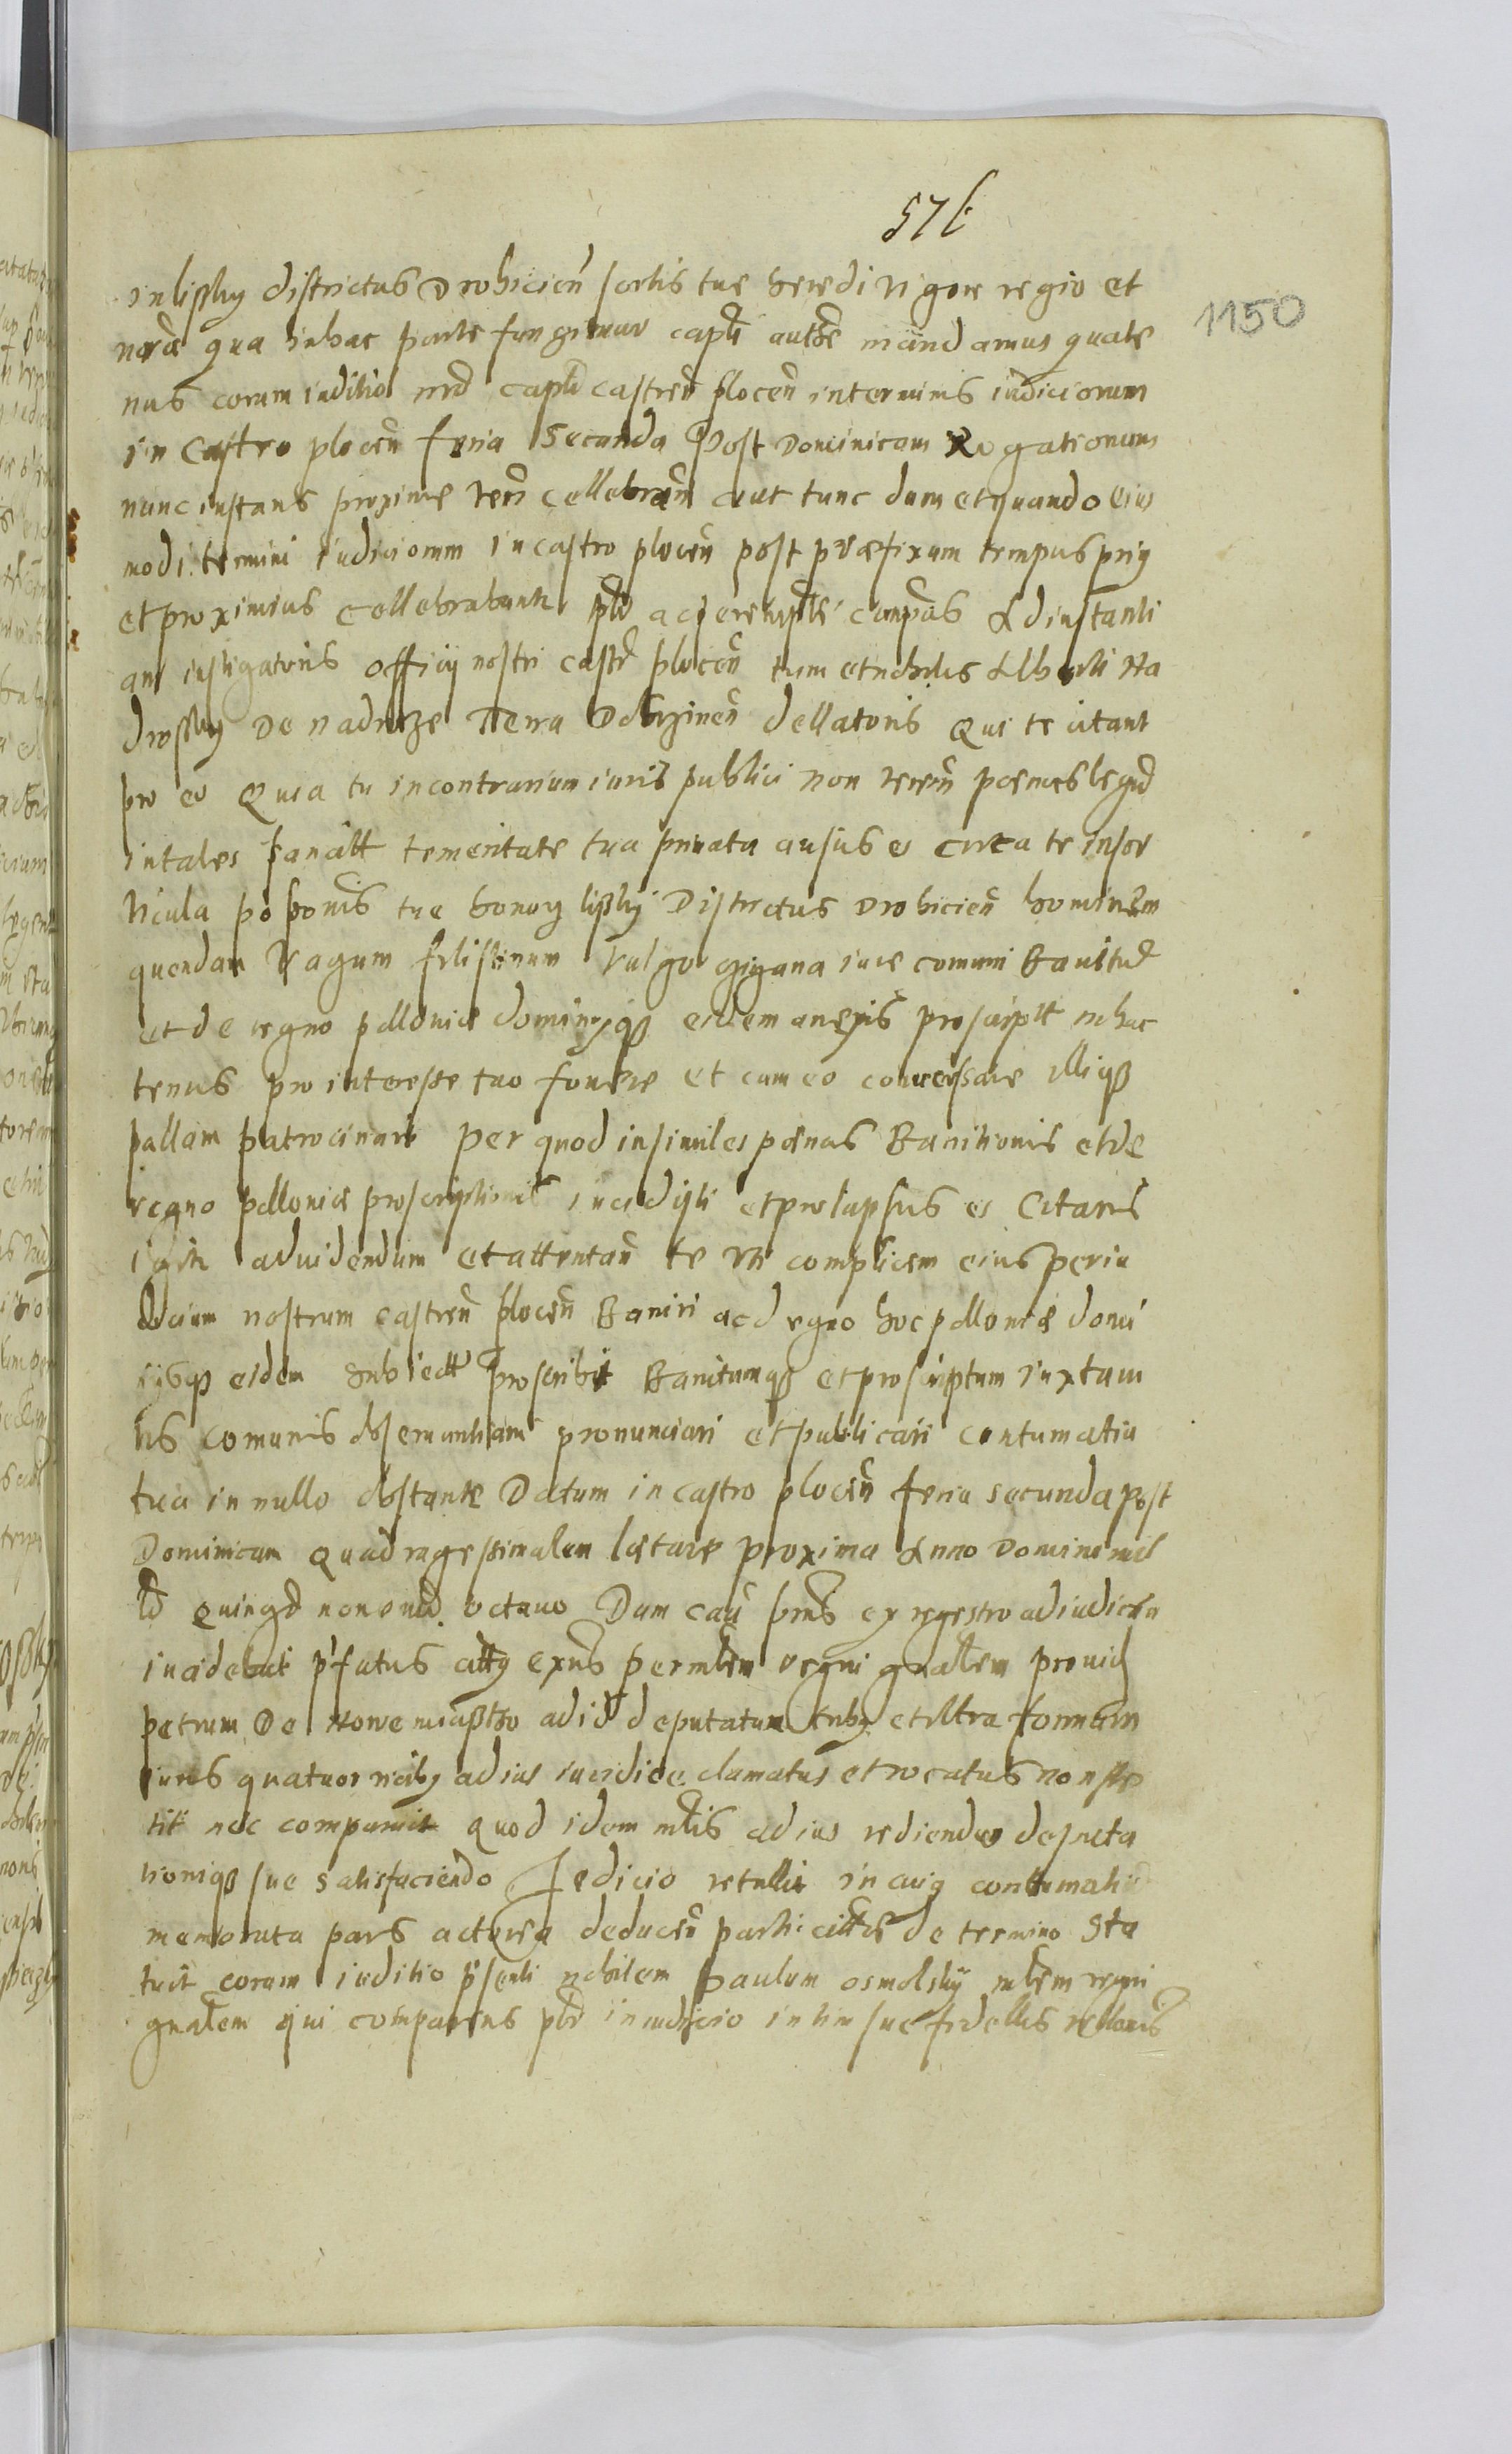 576
1150
in lisßky districtus Drohicien̄ sortis tue heredi vigore regio et
nr̄a qua in hac parte fungimur capti authē mandamus quate
nus coram iuditio nrō capti castren̄ plocen̄ in terminis iudiciorum
in Castro plocen̄ feria Secunda Post Dominicam Rogationum
nunc instans proxime ven̄ cellebran̄ aut tunc dum et quando eius
modi termini iudiciorum in castro plocen̄ post præfixum tempus priꝯ
et proximius cellebrabuntr ꝑlr ac peremptē compās Ad instanti
am instigatoris officij nostri castrē plocen̄ tum et nobilis Alberti Na
drosky de nadroze Terra Dobrzinen̄ dellatoris Qui te citant
pro eo Quia tu in contrarium iuris publici non veren̄ poenas legūm
in tales sancitt temeritate tua privata ausus es circa te in sor
ticula posōnis tue bonorꝫ lißky Districtus Drohicien̄ hominem
quendam Vagum filistinum vulgo cigana iure comuni Banitū
et de regno polloniæ dominysqꝫ eidem anexis proscriptt in hac
tenus pro interesse tuo fouere et cum eo conversare illiqꝫ
pallam patrocinari per quod in similes pænas Banitionis et de
regno polloniæ proscriptionis incidisti et prolapsus es Citaris
igitr ad videndum et attentan̄ te uti complicem eius per iu
dicium nostrum castren̄ plocen̄ Baniri ac d regno hoc polloniæ domi
nijsqꝫ eidem subiectt proscribi Banitumqꝫ et proscriptum iuxta iu
ris comunis observantiam pronunciari et publicari contumatia
tua in nullo obstante Datum in castro plocen̄ feria secunda post
Dominicam quadragessimalem lætare proxima Anno Domini mil
lō quingō nonōnō octavo Dum caū pn̄s ex regestro adiudicōn
incidebat p̄fatus cittꝯ exn̄s per mtēm regni gnālem provid
petrum de nowe miaßtho ad id deputatum tribꝯ et ultra formam
iuris quatuor vicibꝯ ad ius iuridice clamatus et vocatus non ste
tit nec comparuit quod idem mtis ad ius rediendo deputa
tioniqꝫ sue satisfaciendo Iudicio retullit in cuiꝯ contumatia
memorata pars actorea deducen̄ parti cittæ de termino Sta
tuit coram iuditio p̄senti nobilem paulum osmolsky mtēm regni
gnālem qui comparens ꝑlr in iudicio in vim sue fidellis rellonis